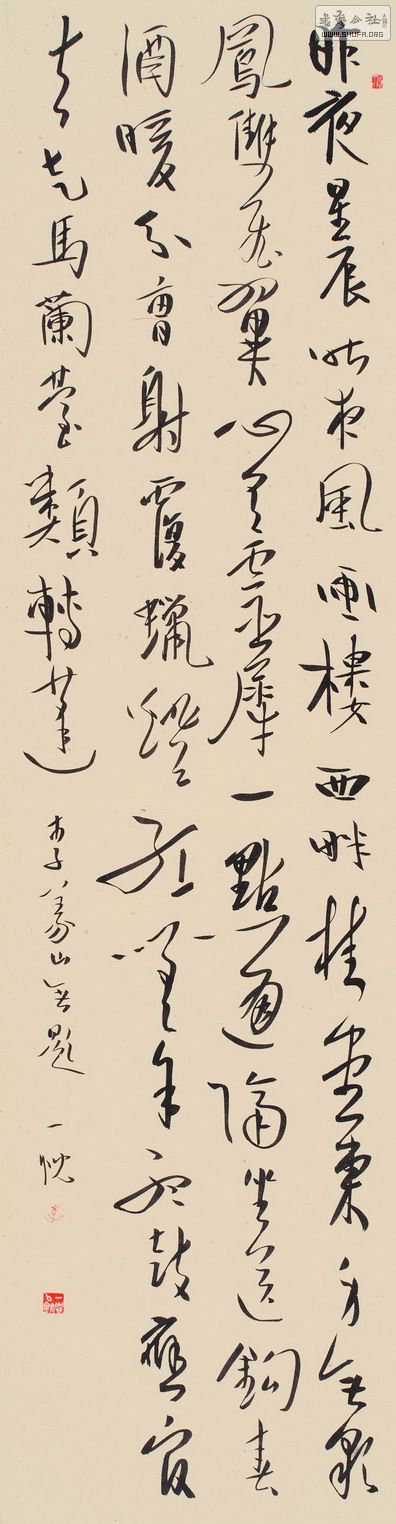 昨夜星辰昨夜風畫樓西畔桂堂東身無彩
鳳雙飛翼心有靈犀一點通隔坐送鉤春
酒暖分曹射覆蠟燈紅嗟余聽鼓應官
去走馬蘭臺類轉蓬
李義山無題 一
書畫公社
WWW.SHUFA.ORG